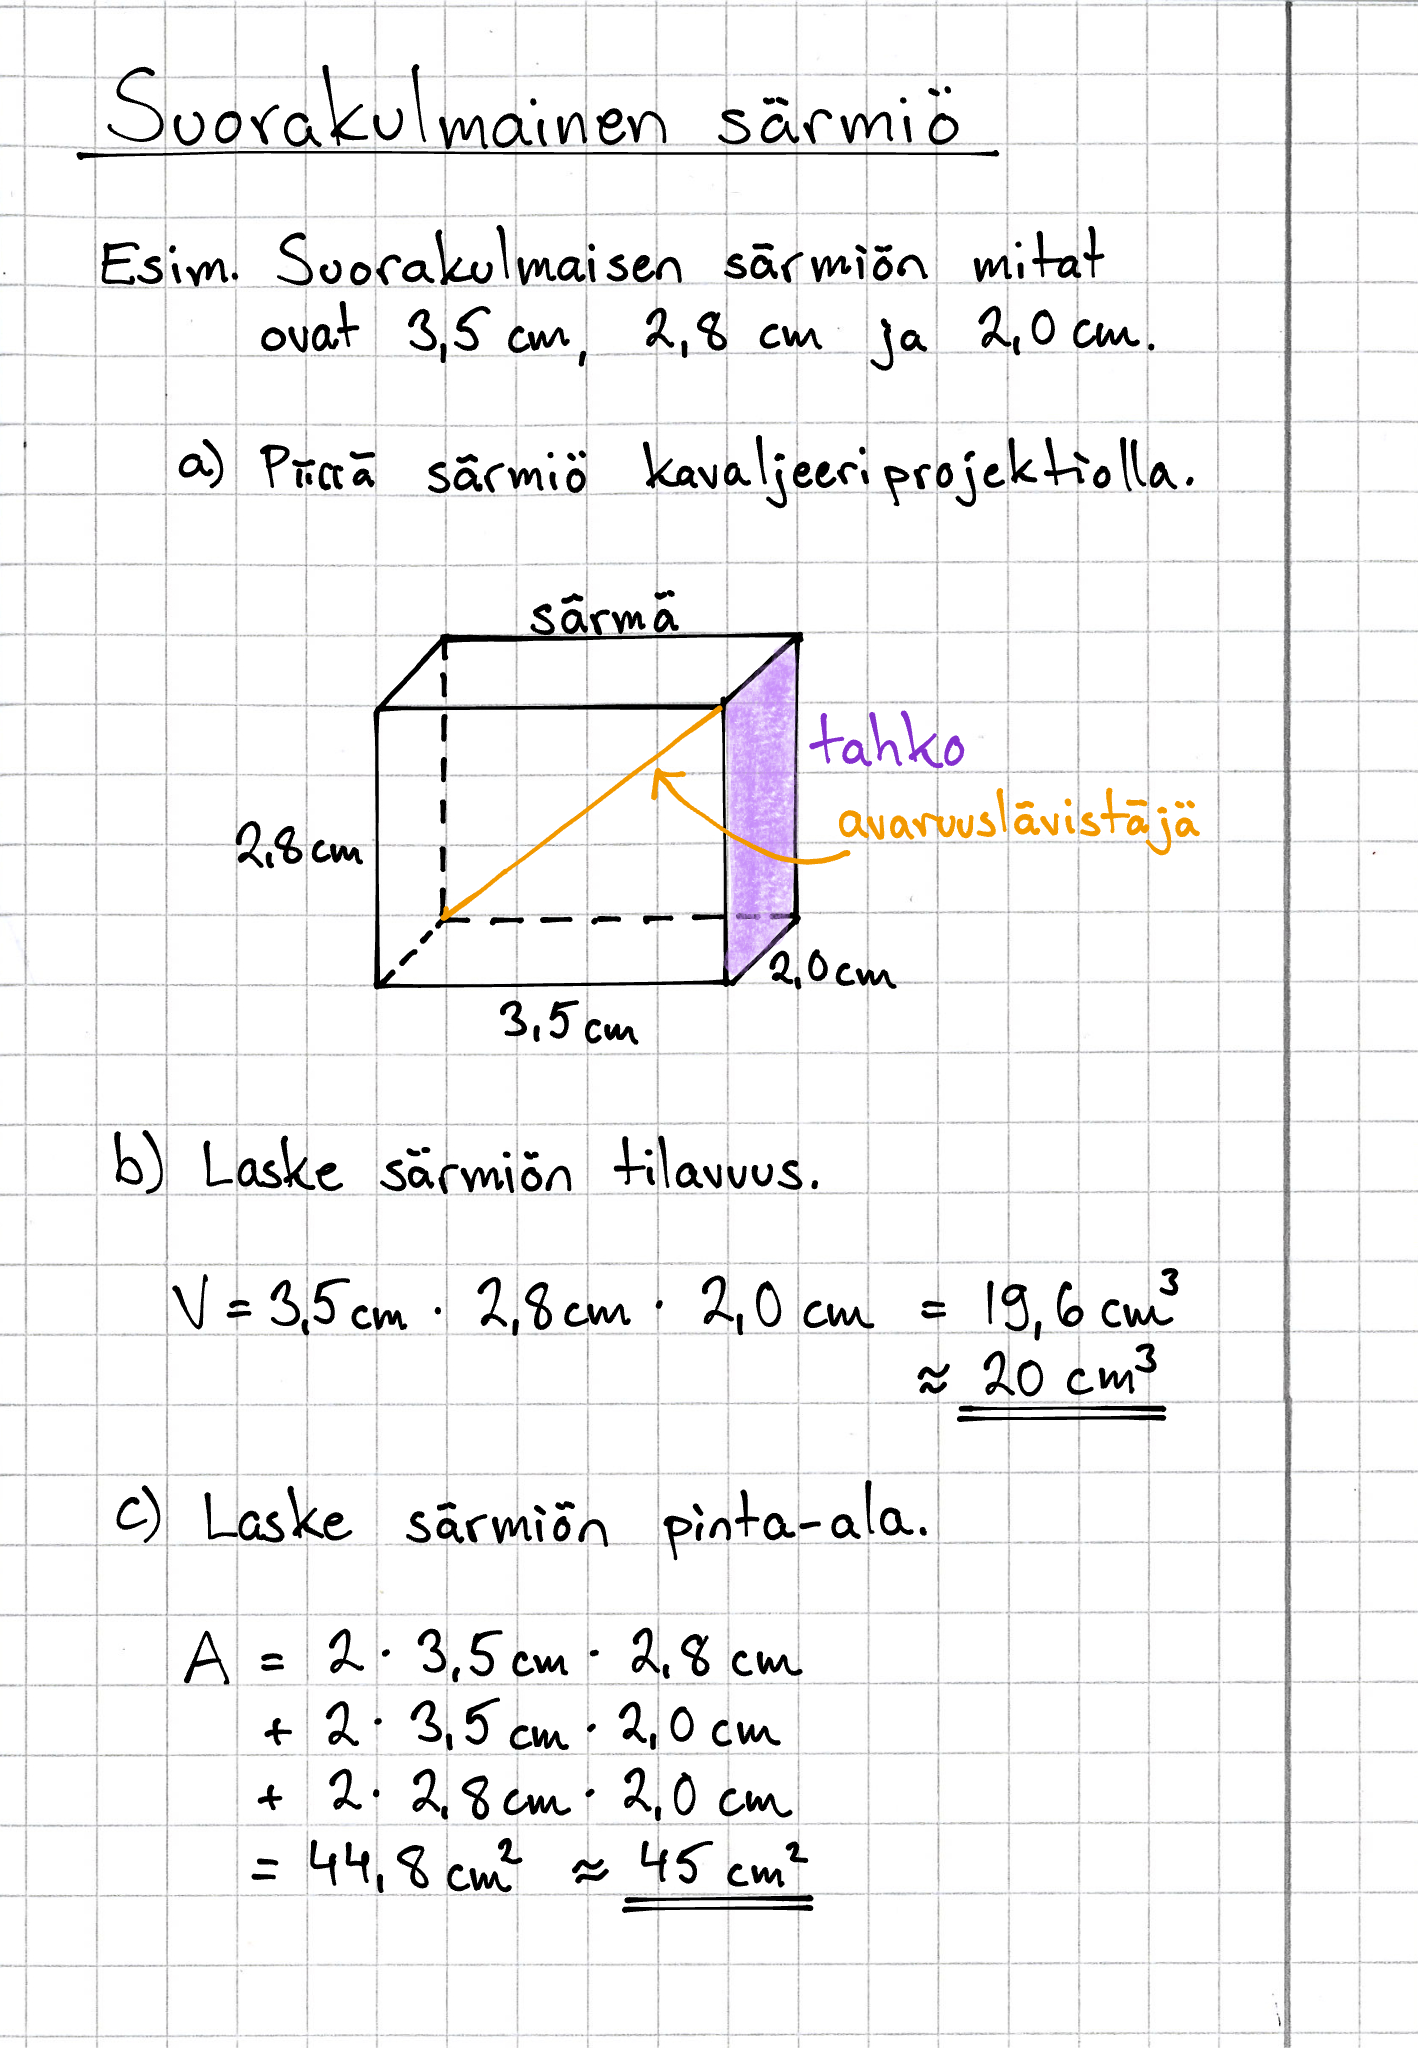 Suorakulmainen särmiö
Esim. Suorakulmaisen särmiön mitat
ovat 3,5 cm, 2,8 cm ja 2,0 cm.
a) Piirrä särmiö kavaljeeriprojektiolla.
särmä
tahko
avaruuslävistäjä
2,8 cm
2,0 cm
3,5 cm
b) Laske särmiön tilavuus.
V = 3,5 cm · 2,8 cm · 2,0 cm = 19,6 cm³
≈ 20 cm³
c) Laske särmiön pinta-ala.
A = 2 · 3,5 cm · 2,8 cm
+ 2 · 3,5 cm · 2,0 cm
+ 2 · 2,8 cm · 2,0 cm
= 44,8 cm² ≈ 45 cm²